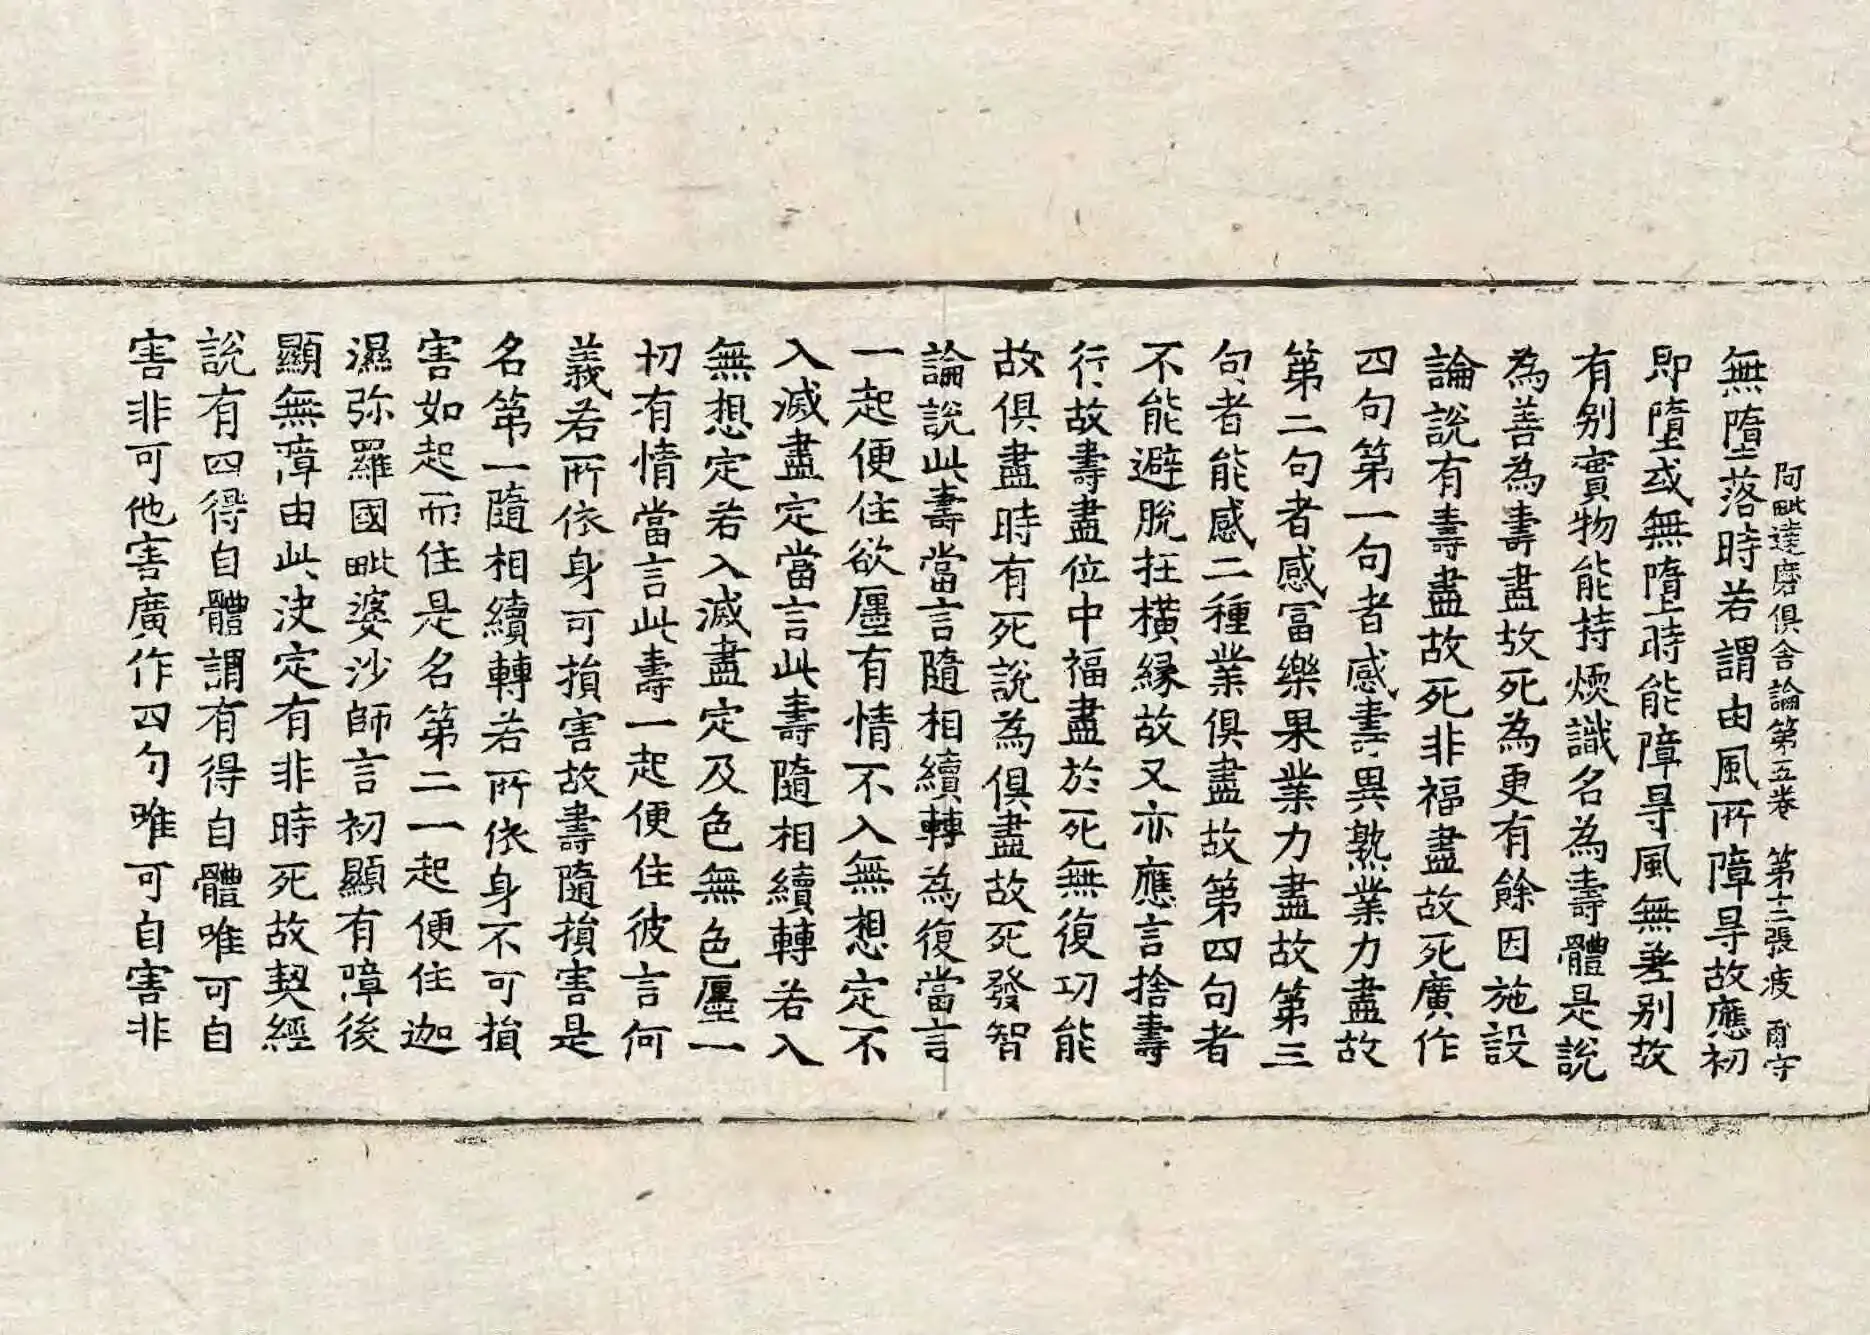 阿毗達磨俱舍論第五卷 第十二張 疲 守
無墮落時若謂由風所障㝵故應初
即墮或無墮時能障㝵風無差别故
有别實物能持煗識名為壽體是說
為善為壽盡故死為更有餘因施設
論說有壽盡故死非福盡故死廣作
四句第一句者感壽異熟業力盡故
第二句者感冨樂果業力盡故第三
句者能感二種業俱盡故第四句者
不能避脫抂橫縁故又亦應言捨壽
行故壽盡位中福盡於死無復功能
故俱盡時有死說為俱盡故死發智
論說此壽當言隨相續轉為復當言
一起便住欲㕓有情不入無想定不
入滅盡定當言此壽隨相續轉若入
無想定若入滅盡定及色無色㕓一
切有情當言此壽一起便住彼言何
義若所依身可損害故壽隨損害是
名第一隨相續轉若所依身不可損
害如起而住是名第二一起便住迦
濕弥羅國毗婆沙師言初顯有障後
顯無障由此決定有非時死故契經
說有四得自體謂有得自體唯可自
害非可他害廣作四句唯可自害非